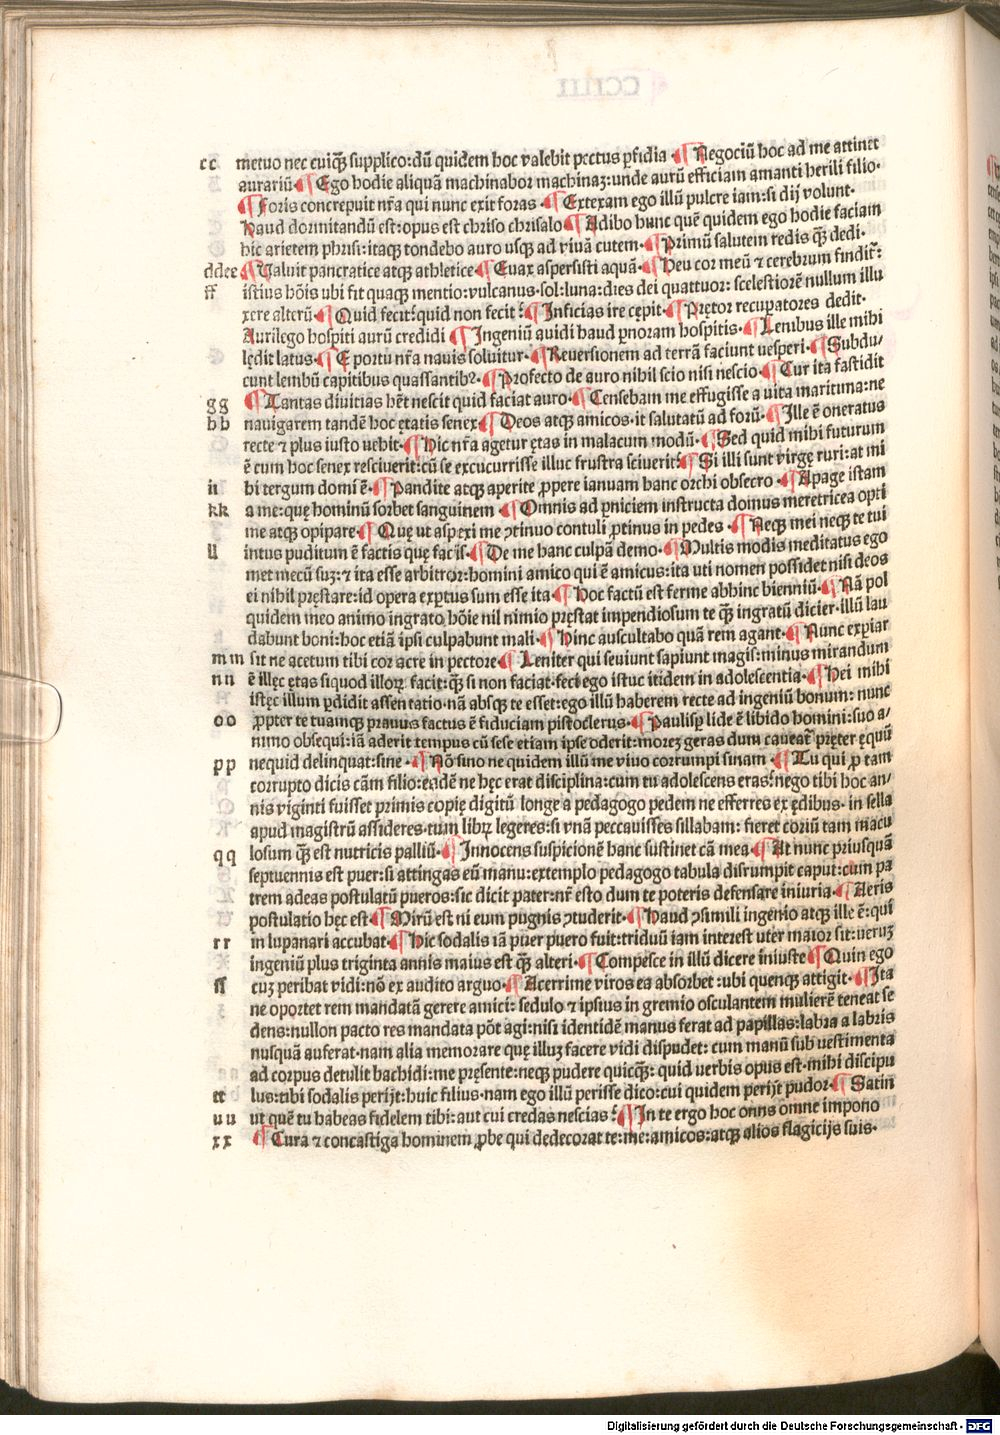 cc metuo nec cuiq̃ȝ supplico:dũ quidem hoc valebit pectus ꝑfidia ¶ Negociũ hoc ad me attinet
aurariũ ¶ Ego hodie aliquã machinabor machinaȝ:unde aurũ efficiam amanti herili filio·
¶ Foris concrepuit nr̃a qui nunc exit foras ¶ Extexam ego illũ pulcre iam:si dij volunt·
Haud dormitandũ est:opus est chriso chrisalo ¶ Adibo hunc quẽ quidem ego hodie faciam
hic arietem phrisi:itaqȝ tondebo auro usqȝ ad viuã cutem· ¶ Primũ salutem redis q̃ȝ dedi·
ddee ¶ Valuit pancratice atqȝ athletice ¶ Euax aspersisti aquã· ¶ Heu cor meũ ⁊ cerebrum findit̃:
ff istius hõis ubi fit quaqȝ mentio:vulcanus·sol:luna:dies dei quattuor: scelestiorẽ nullum illu
xere alterũ· ¶ Quid fecit:quid non fecit: ¶ Inficias ire cępit· ¶ Prętor recupatores dedit·
Aurilego hospiti aurũ credidi ¶ Ingeniũ auidi haud ꝑnoram hospitis· ¶ Lenibus ille mihi
lędit latus· ¶ E portu nr̃a nauis soluitur· ¶ Reuersionem ad terrã faciunt uesperi· ¶ Subdu/
cunt lembũ capitibus quassantibꝫ. ¶ Profecto de auro nihil scio nisi nescio· ¶ Cur ita fastidit
gg ¶ Tantas diuitias hẽt nescit quid faciat auro· ¶ Censebam me effugisse a uita marituna:ne
hh nauigarem tandẽ hoc ętatis senex ¶ Deos atqȝ amicos·it salutatũ ad forũ· ¶ Ille ẽ oneratus
recte ⁊ plus iusto uehit· ¶ Hic nr̃a agetur ętas in malacum modũ· ¶ Sed quid mihi futurum
ẽ cum hoc senex resciuerit:cũ se excucurrisse illuc frustra sciuerit: ¶ Si illi sunt virgę ruri:at mi
ii hi tergum domi ẽ· ¶ Pandite atqȝ aperite ꝓpere ianuam hanc orchi obsecro · ¶ Apage istam
kk a me:quę hominũ sorbet sanguinem ¶ Omnis ad ꝑniciem instructa domus meretricea opti
me atqȝ opipare· ¶ Quę ut aspexi me ↄtinuo contuli ꝓtinus in pedes · ¶ Neqȝ mei neqȝ te tui
ll intus puditum ẽ factis quę facis· ¶ De me hanc culpã demo· ¶ Multis modis meditatus ego
met mecũ suȝ:⁊ ita esse arbitror:homini amico qui ẽ amicus:ita uti nomen possidet nisi deos
ei nihil pręstare:id opera exꝑtus sum esse ita ¶ Hoc factũ est ferme abhinc bienniũ· ¶ Nã pol
quidem meo animo ingrato hõie nil nimio pręstat impendiosum te q̃ȝ ingratũ dicier·illũ lau
dabunt boni:hoc etiã ipsi culpabunt mali· ¶ Hinc auscultabo quã rem agant· ¶ Nunc exꝑiar
mm sit ne acetum tibi cor acre in pectore ¶ Leniter qui seuiunt sapiunt magis:minus mirandum
nn ẽ illęc ętas siquod illoꝝ facit:q̃ȝ si non faciat·feci ego istuc itidem in adolescentia· ¶ Hei mihi
istęc illum ꝑdidit assentatio·nã absqȝ te esset:ego illũ haberem recte ad ingeniũ bonum: nunc
oo ꝓpter te tuamqȝ prauus factus ẽ fiduciam pistoclerus· ¶ Paulisꝑ lide ẽ libido homini:suo a/
nimo obsequi:iã aderit tempus cũ sese etiam ipse oderit:moreȝ geras dum caueat̃ pręter ęquũ
pp nequid delinquat:sine · ¶ Nõ sino ne quidem illũ me viuo corrumpi sinam · ¶ Tu qui ꝓ tam
corrupto dicis cãm filio:eadẽ ne hęc erat disciplina:cum tu adolescens eras:nego tibi hoc an/
nis viginti fuisset primis copię digitũ longe a pedagogo pedem ne efferres ex ędibus· in sella
apud magistrũ assideres·tum libꝝ legeres:si vnã peccauisses sillabam: fieret coriũ tam macu
qq losum q̃ȝ est nutricis palliũ· ¶ Innocens suspicionẽ hanc sustinet cã mea ¶ At nunc priusquã
septuennis est puer:si attingas eũ manu:extemplo pedagogo tabula disrumpit caput:cum pa
trem adeas postulatũ pueros:sic dicit pater:nr̃ esto dum te poteris defensare iniuria· ¶ Aeris
postulatio hęc est ¶ Mirũ est ni eum pugnis ↄtuderit· ¶ Haud ↄsimili ingenio atqȝ ille ẽ:qui
rr in lupanari accubat· ¶ Hic sodalis iã puer puero fuit:triduũ iam interest uter maior sit:ueruȝ
ingeniũ plus triginta annis maius est q̃ȝ alteri· ¶ Compesce in illũ dicere iniuste ¶ Quin ego
ſſ cuȝ peribat vidi:nõ ex audito arguo· ¶ Acerrime viros ea absorbet:ubi quenqȝ attigit· ¶ Ita
ne oportet rem mandatã gerere amici: sedulo ⁊ ipsius in gremio osculantem mulierẽ teneat se
dens:nullon pacto res mandata põt agi:nisi identidẽ manus ferat ad papillas:labra a labris
nusquã auferat·nam alia memorare quę illuȝ facere vidi dispudet: cum manũ sub uestimenta
ad corpus detulit bachidi:me pręsente:neqȝ pudere quicq̃ȝ: quid uerbis opus est·mihi discipu
tt lus:tibi sodalis perijt:huic filius·nam ego illũ perisse dico:cui quidem perijt pudor· ¶ Satin
uu ut quẽ tu habeas fidelem tibi:aut cui credas nescias: ¶ In te ergo hoc onns omne impono
xx ¶ Cura ⁊ concastiga hominem ꝓbe qui dedecorat te:me:amicos:atqȝ alios flagicijs suis·
Digitalisierung gefördert durch die Deutsche Forschungsgemeinschaft - DFG